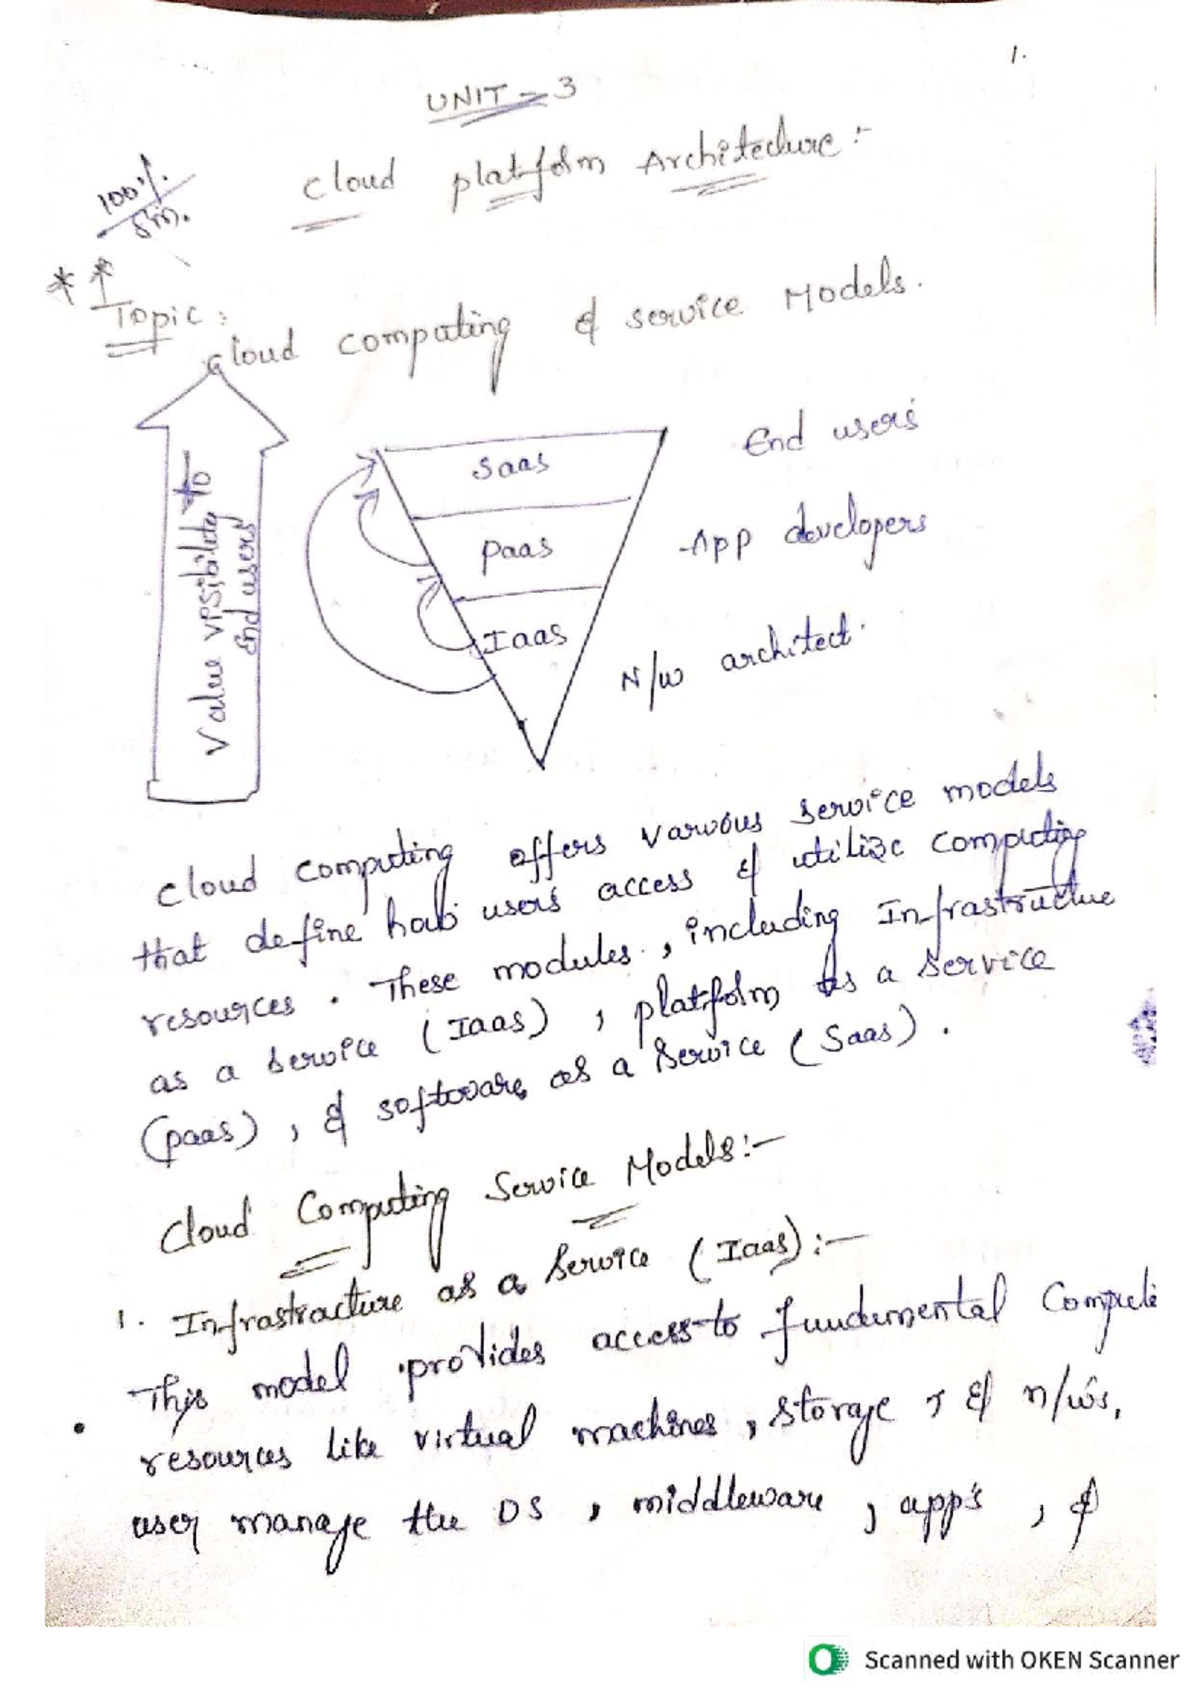 1.
UNIT - 3
Cloud platform Architecture :-
100%
* *
Topic :
Cloud computing & service Models.
Value visibility to
End users
Saas
Paas
Iaas
End users
App developers
N/w architect.
Cloud computing offers various service models
that define how users access & utilize computing
resources. These modules, including Infrastructure
as a service (Iaas), platform as a service
(paas), & software as a service (Saas).
Cloud Computing Service Models:-
1. Infrastracture as a Service (Iaas):-
This model provides access to fundumental Compute
resources like virtual machines, storage, & n/w's,
user manage the OS, middleware, app's, &
Scanned with OKEN Scanner